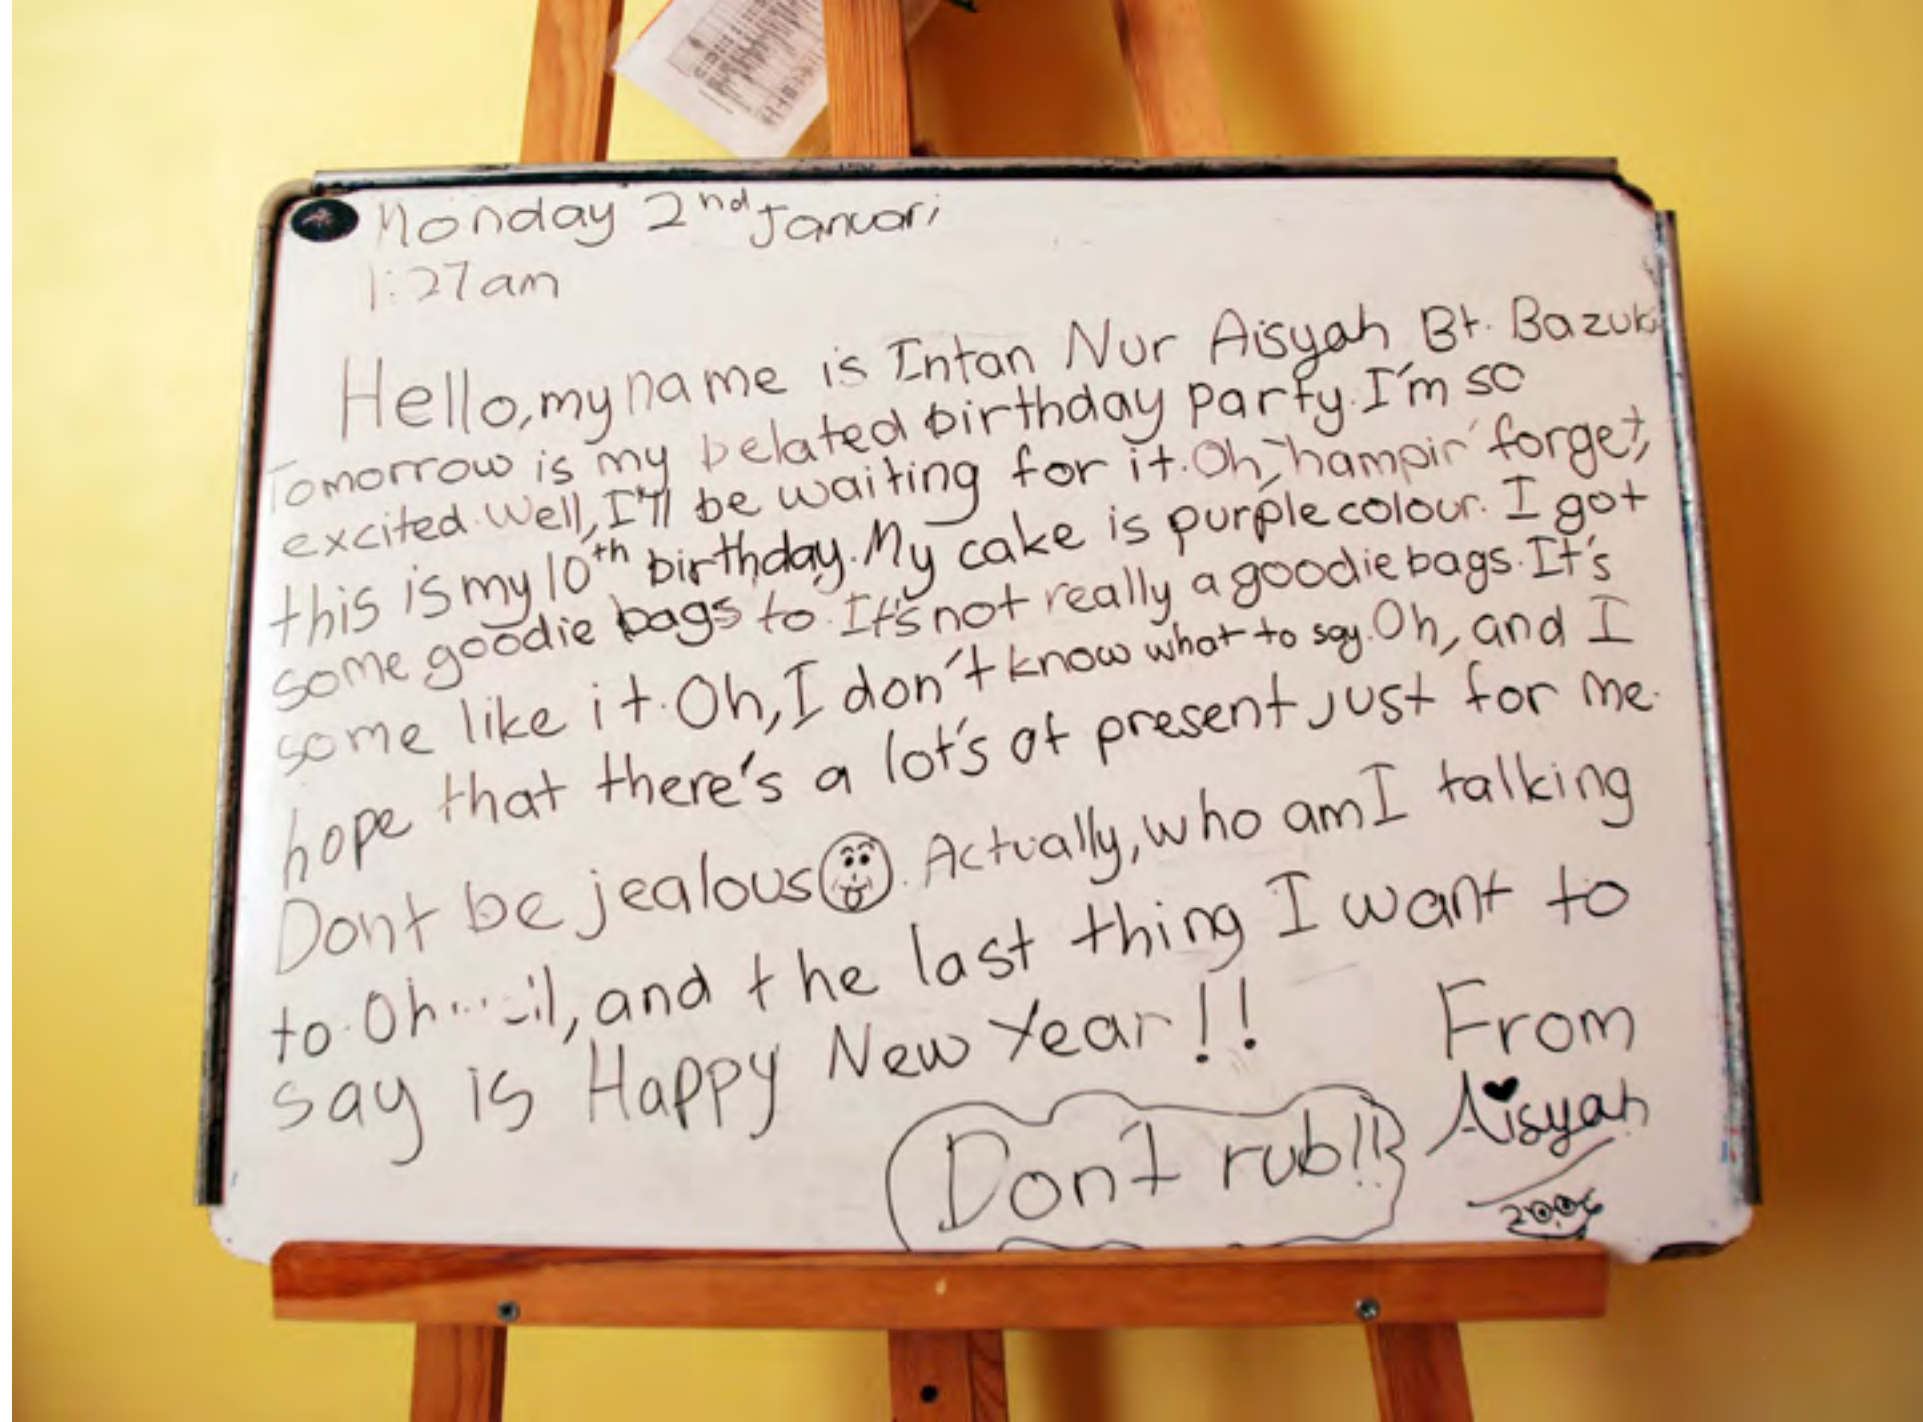 Monday 2nd Januari
1:27am
Hello, my name is Intan Nur Aisyah Bt. Bazuki
Tomorrow is my belated birthday party. I'm so
excited. Well, I'll be waiting for it. Oh, "hampir" forget,
this is my 10th birthday. My cake is purple colour. I got
some goodie bags to. It's not really a goodie bags. It's
some like it. Oh, I don't know what to say. Oh, and I
hope that there's a lot's of present just for me.
Dont be jealous. Actually, who am I talking
to. Oh..., and the last thing I want to
say is Happy New Year!!
From
Aisyah
2006
Don't rub!!!